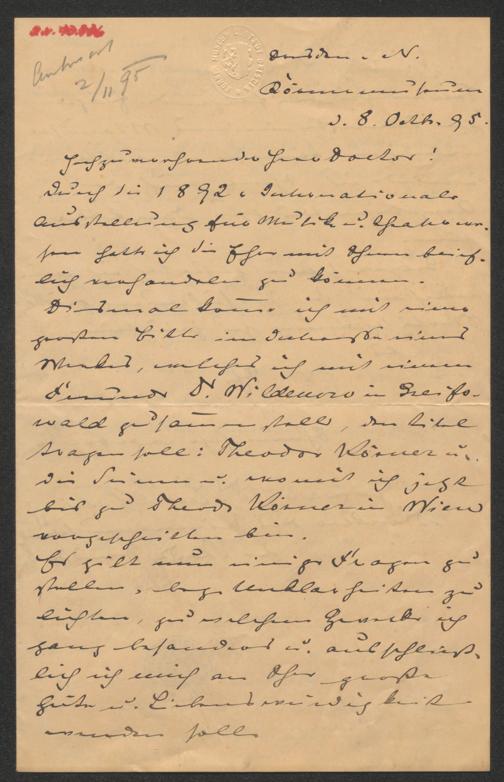 Antwort
2/11 95
Dresden-N.
Körnermuseum
d. 8. Octb. 95.
Hochzuverehrender Herr Doctor!
Durch die 1892er Internationale
Ausstellung für Musik u. Theaterwe-
sen hatte ich die Ehre mit Ihnen brief-
lich verhandeln zu können.
Diesmal komme ich mit einer
großen Bitte im Interesse eines
Werkes, welches ich mit einem
Freunde Dr. Wildenow in Greifs-
wald zusammenstelle, den Titel
tragen soll: Theodor Körner u.
die Seinen u. womit ich jetzt
bis zu Theod. Körner in Wien
vorgeschritten bin.
Es gilt nun einige Fragen zu
stellen, bez. Unklarheiten zu
lichten, zu welchem Zwecke ich
ganz besonders u. ausschließ-
lich ich mich an Ihre große
Güte u. Liebenswürdigkeit
wenden soll